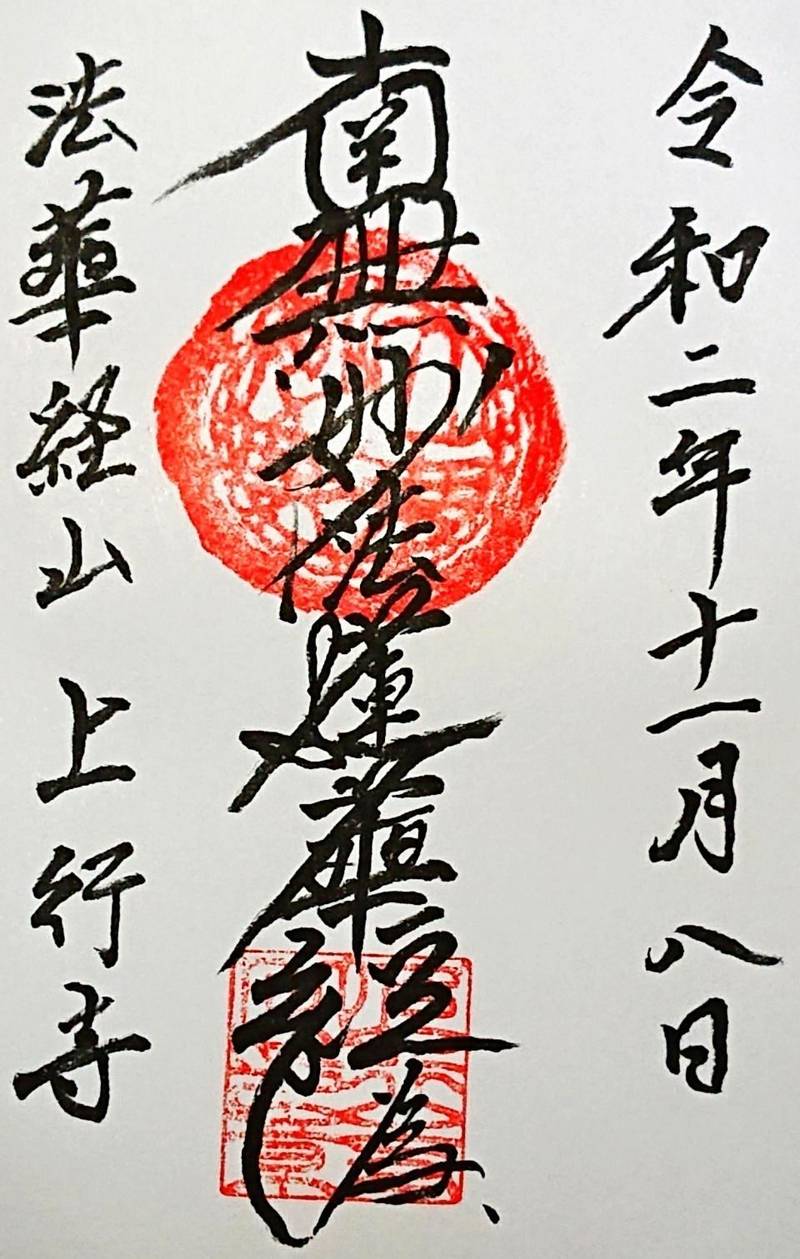 令和二年十一月八日
南無妙法蓮華経
法華経山 上行寺